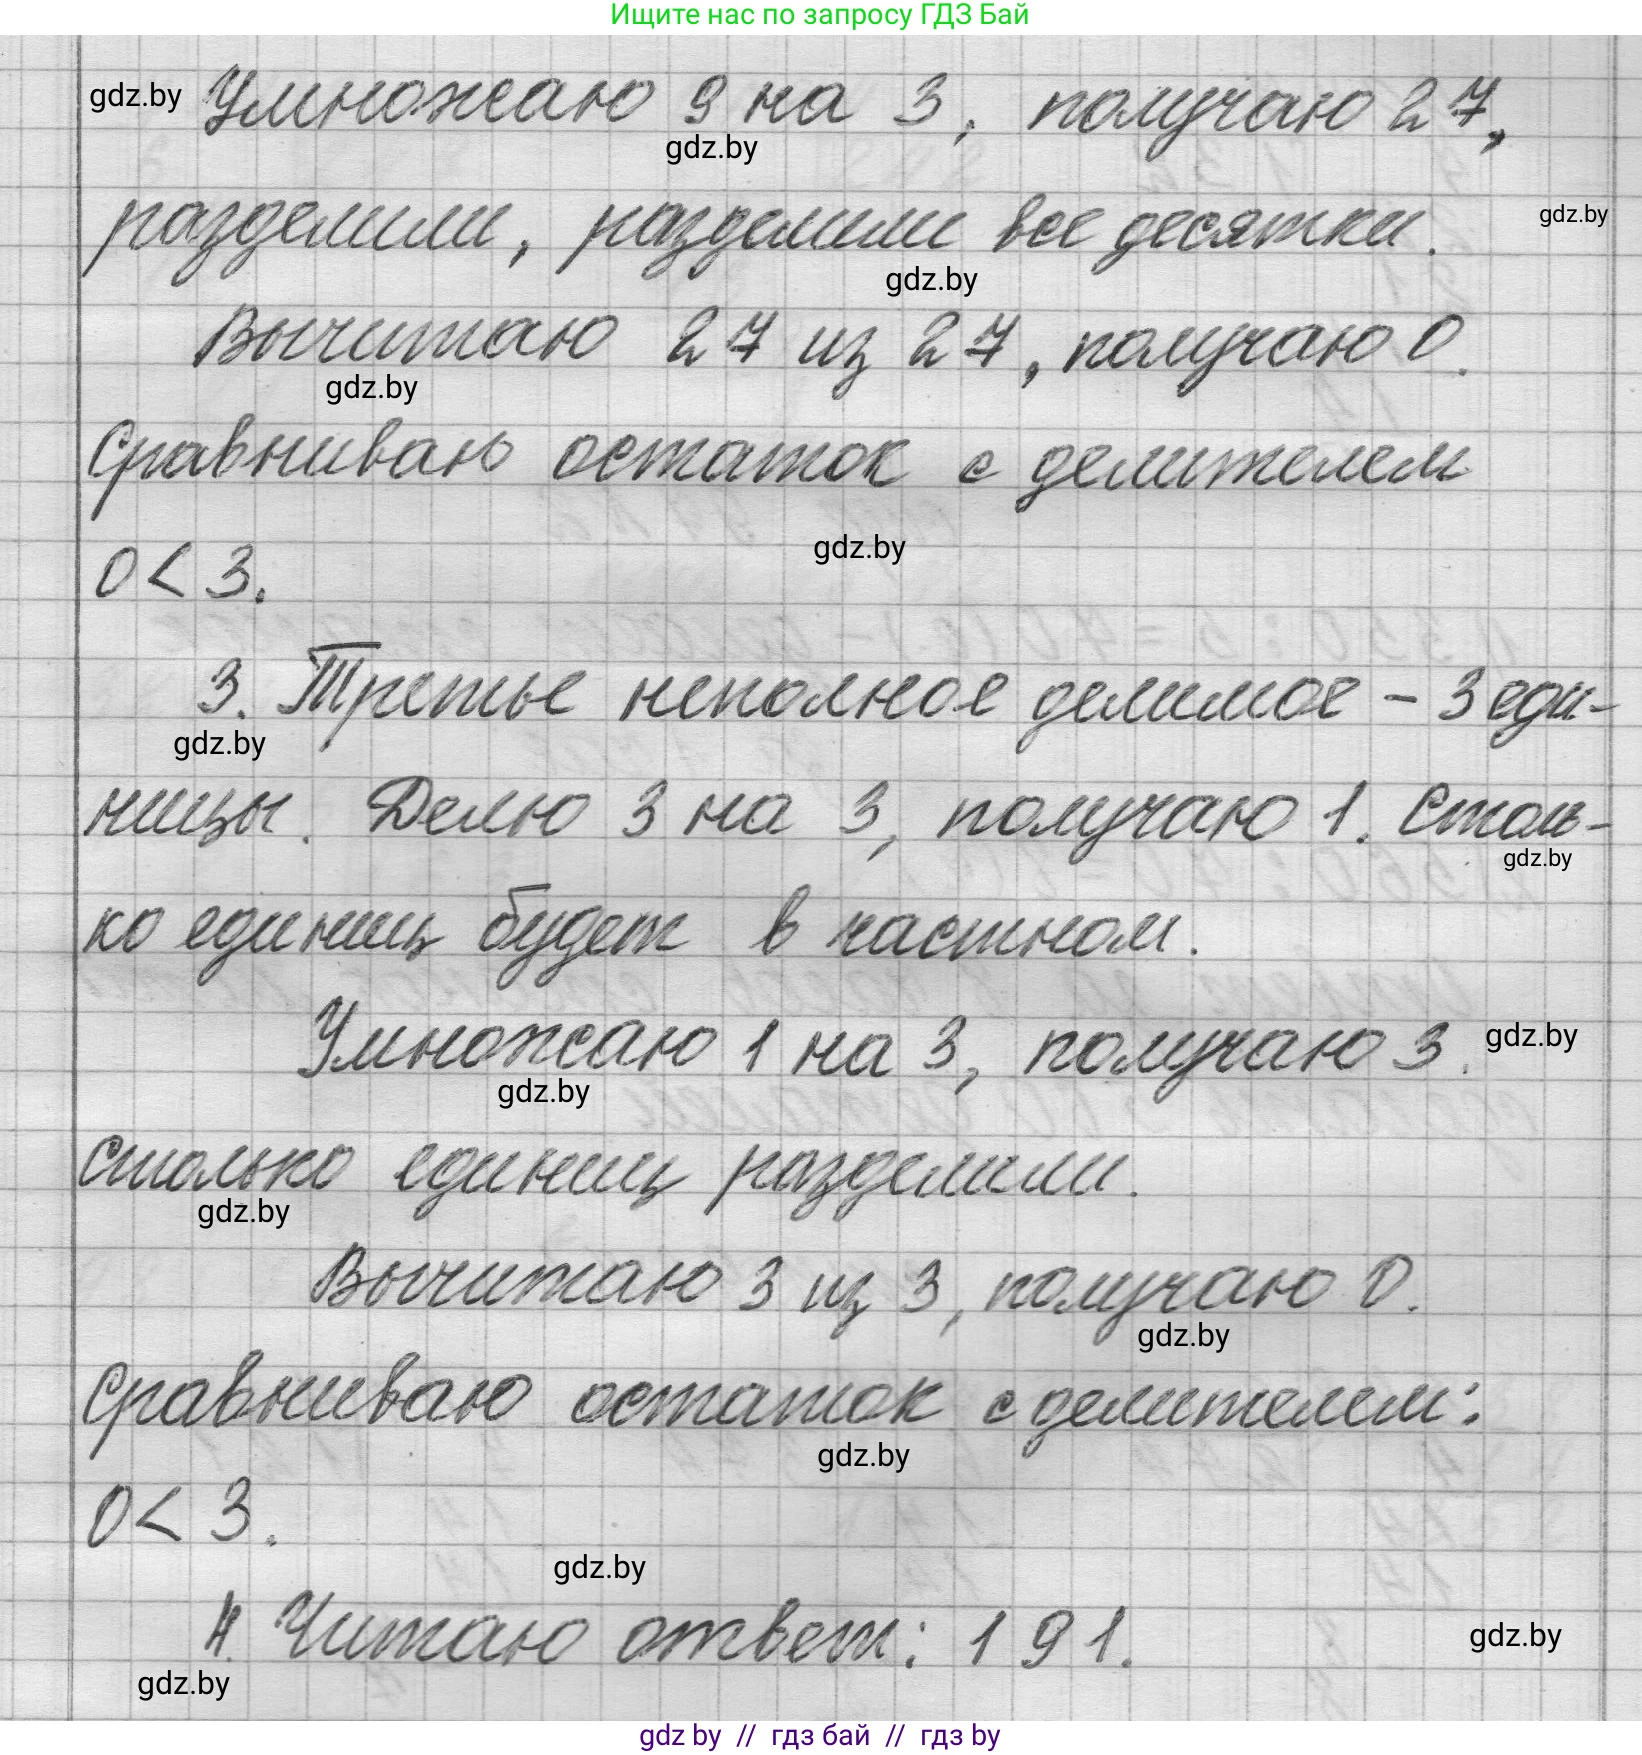 Ищите нас по запросу ГДЗ Бай
gdz.by Умножаю 9 на 3, получаю 27,
gdz.by
разделили, разделили все десятки. gdz.by
gdz.by
Вычитаю 27 из 27, получаю 0.
gdz.by
Сравниваю остаток с делителем
gdz.by
0 < 3.
3. Третье неполное делимое – 3 еди-
gdz.by
ницы. Делю 3 на 3, получаю 1. Столь-
gdz.by
ко единиц будет в частном.
Умножаю 1 на 3, получаю 3. gdz.by
gdz.by
столько единиц разделили.
gdz.by
Вычитаю 3 из 3, получаю 0.
gdz.by
Сравниваю остаток с делителем:
gdz.by
0 < 3.
gdz.by
4. Читаю ответ: 191. gdz.by
gdz.by
gdz by // гдз бай // гдз by